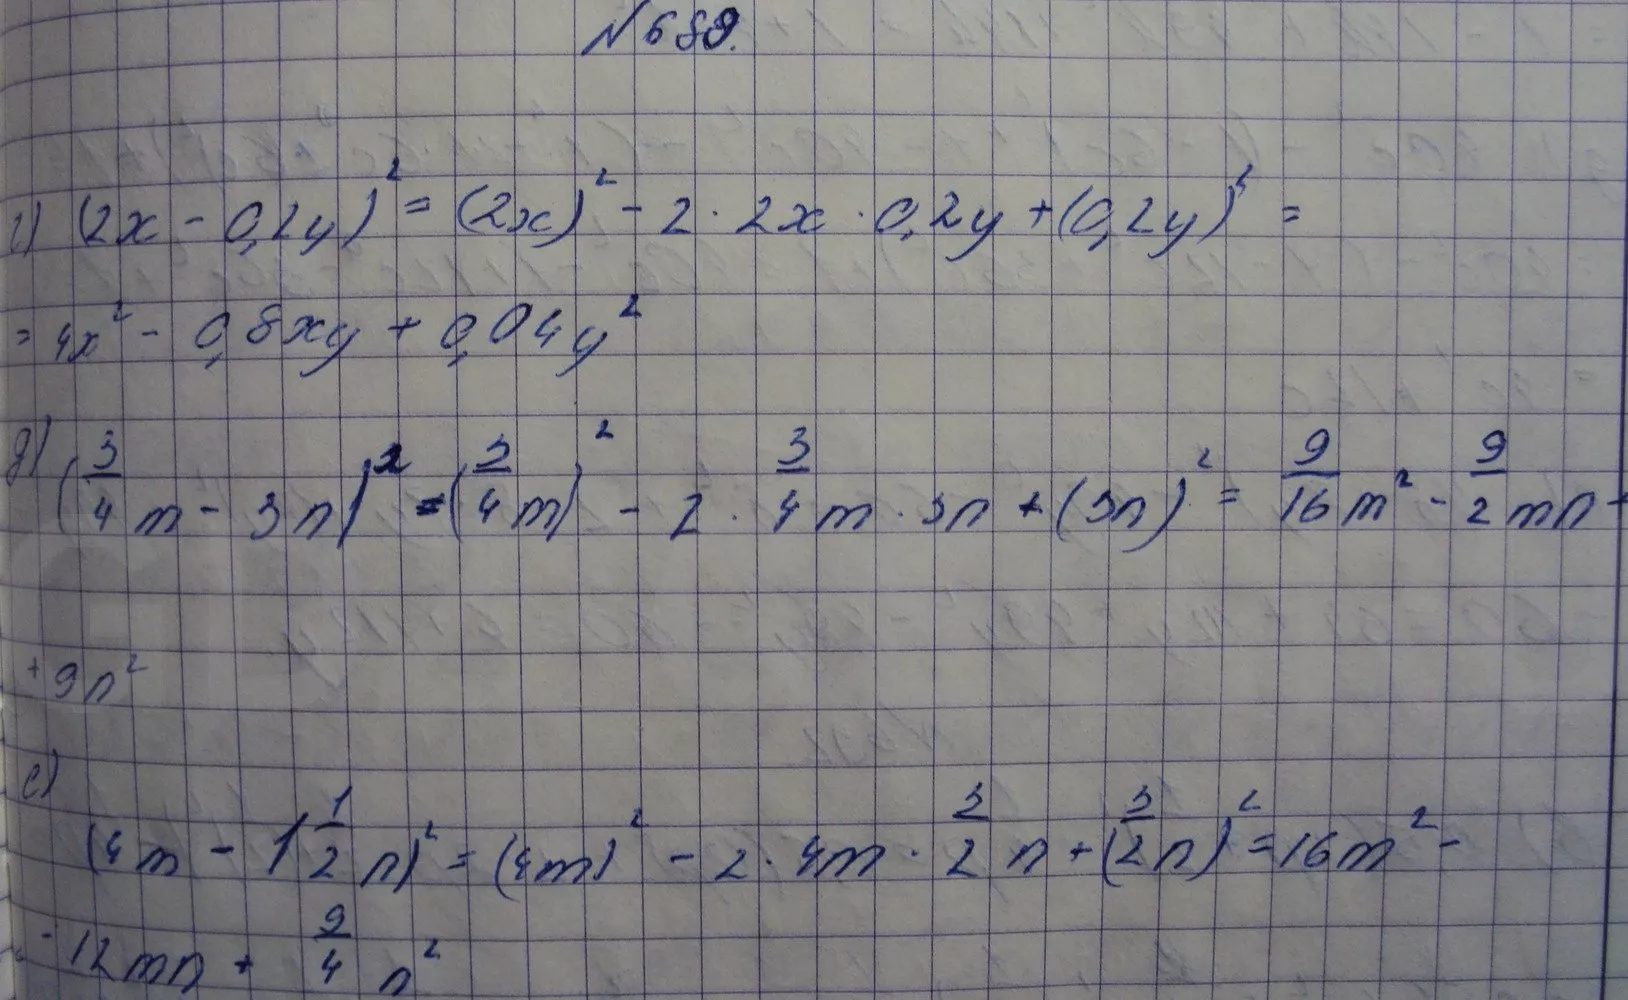 №689.
г) (2x - 0,2y)² = (2x)² - 2 · 2x · 0,2y + (0,2y)² =
= 4x² - 0,8xy + 0,04y²
д) (3/4 m - 3n)² = (3/4 m)² - 2 · 3/4 m · 3n + (3n)² = 9/16 m² - 9/2 mn +
+ 9n²
е)
(4m - 1 1/2 n)² = (4m)² - 2 · 4m · 3/2 n + (3/2 n)² = 16m² -
- 12mn + 9/4 n²